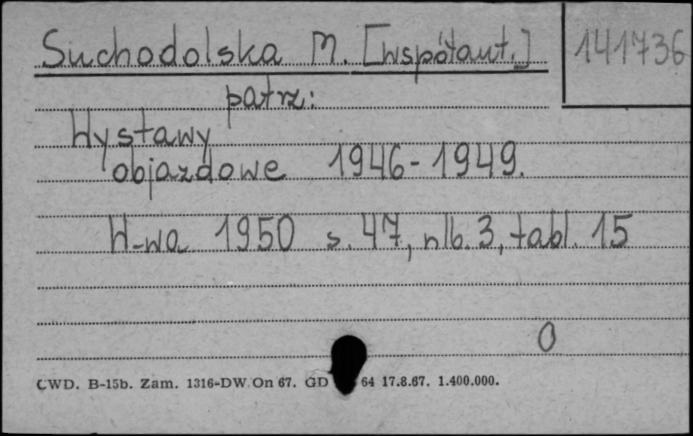 Suchodolska M. [współaut.] 141736
patrz:
Wystawy
objazdowe 1946-1949.
W-wa 1950 s. 47, nlb. 3, tabl. 15
0
CWD. B-15b. Zam. 1316-DW. On 67. GD 64 17.8.67. 1.400.000.